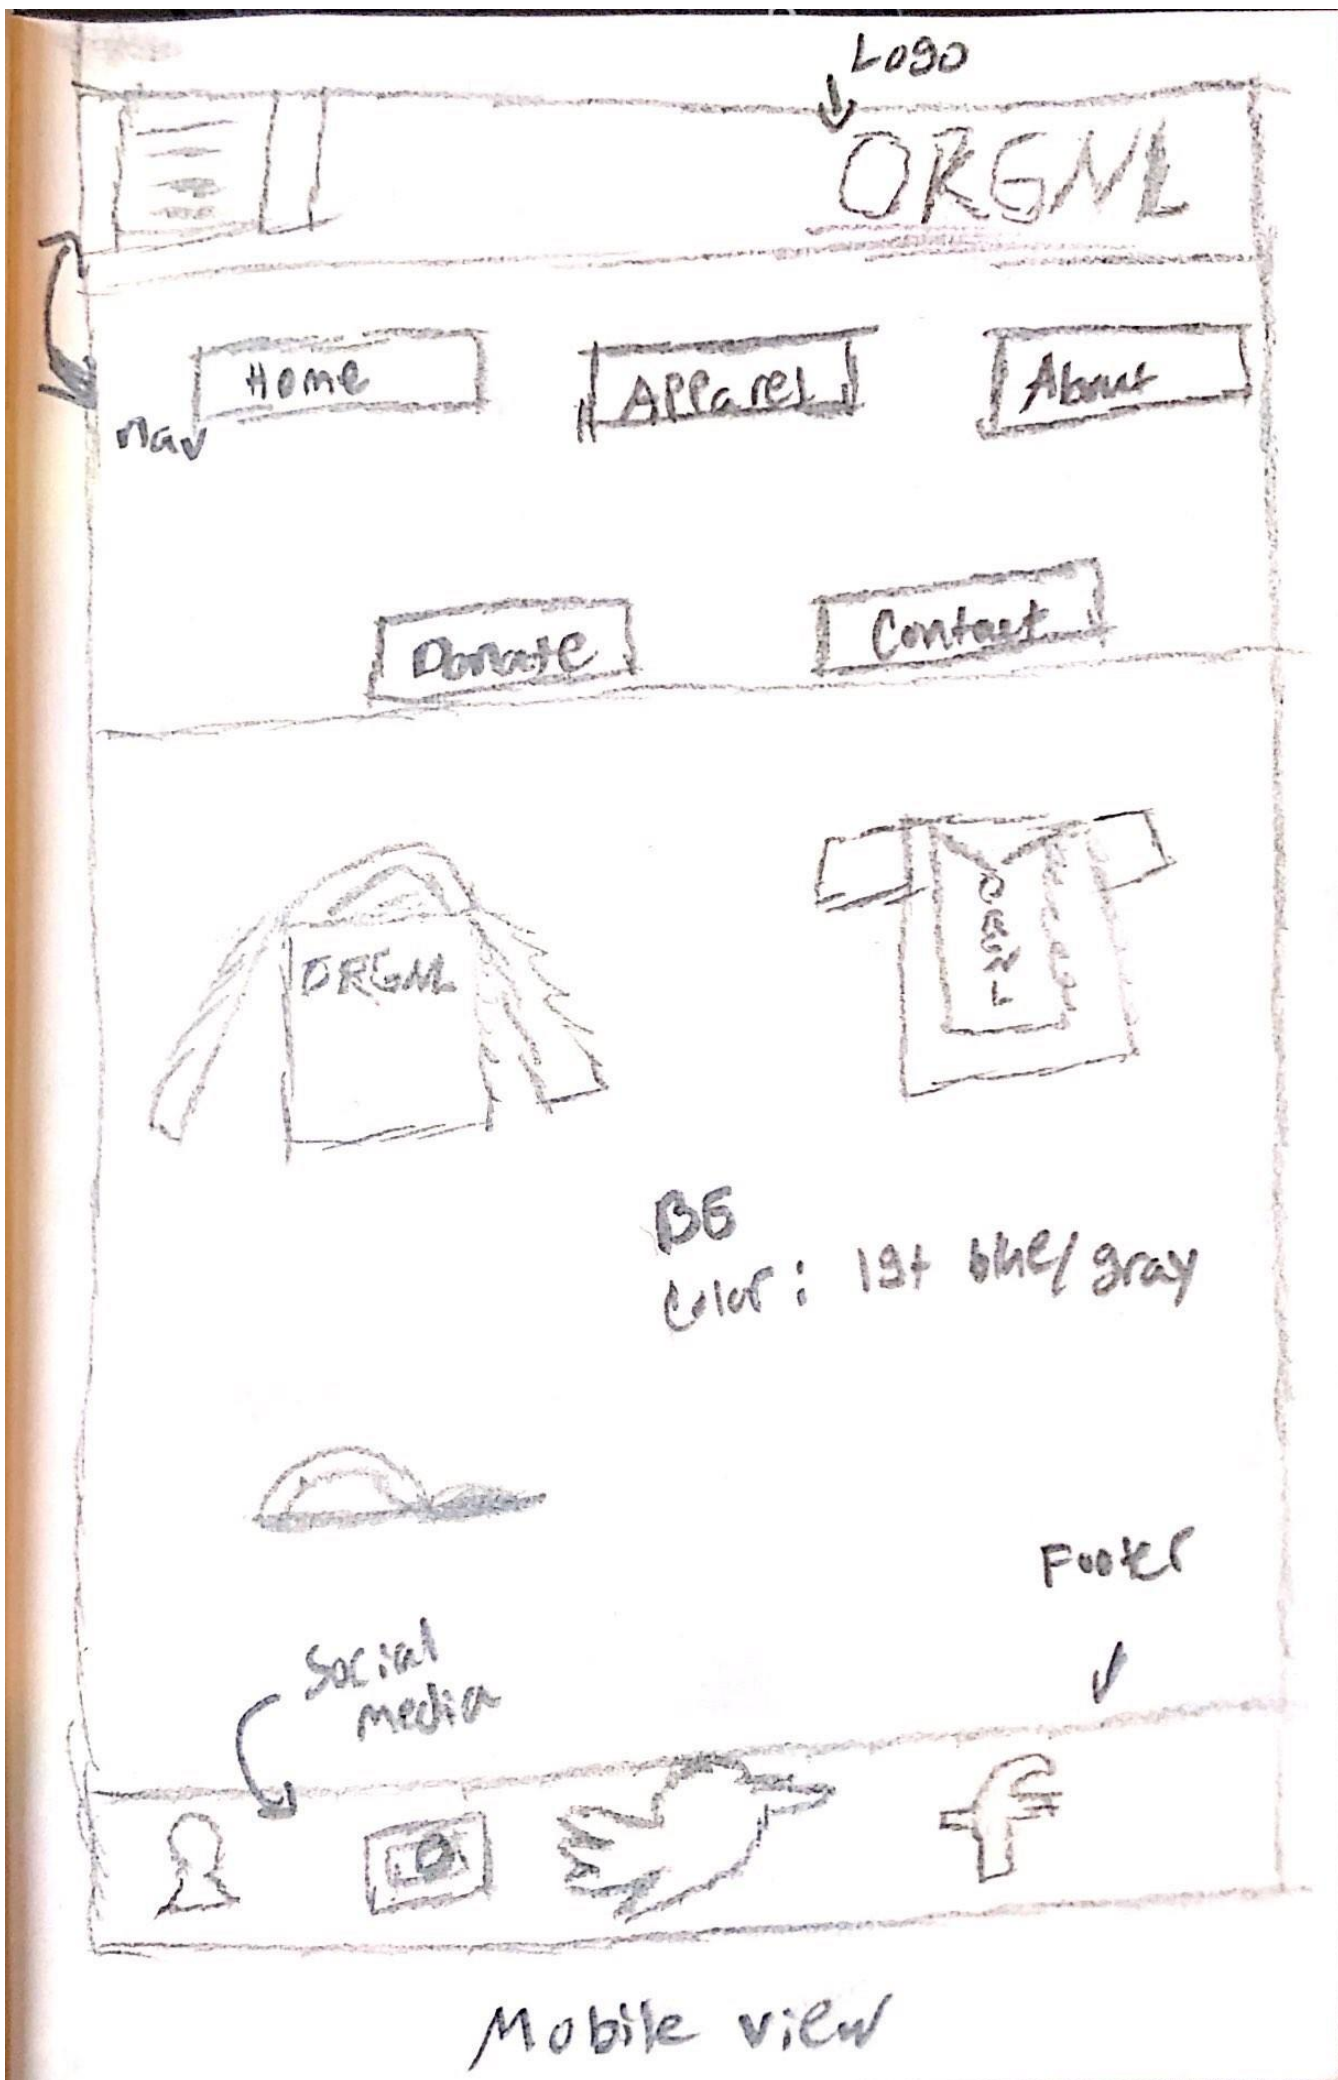 Logo
ORGNL
Home
Apparel
About
nav
Donate
Contact
ORGNL
ORGNL
BG
Color: lgt blue/gray
Footer
Social
media
f
Mobile view